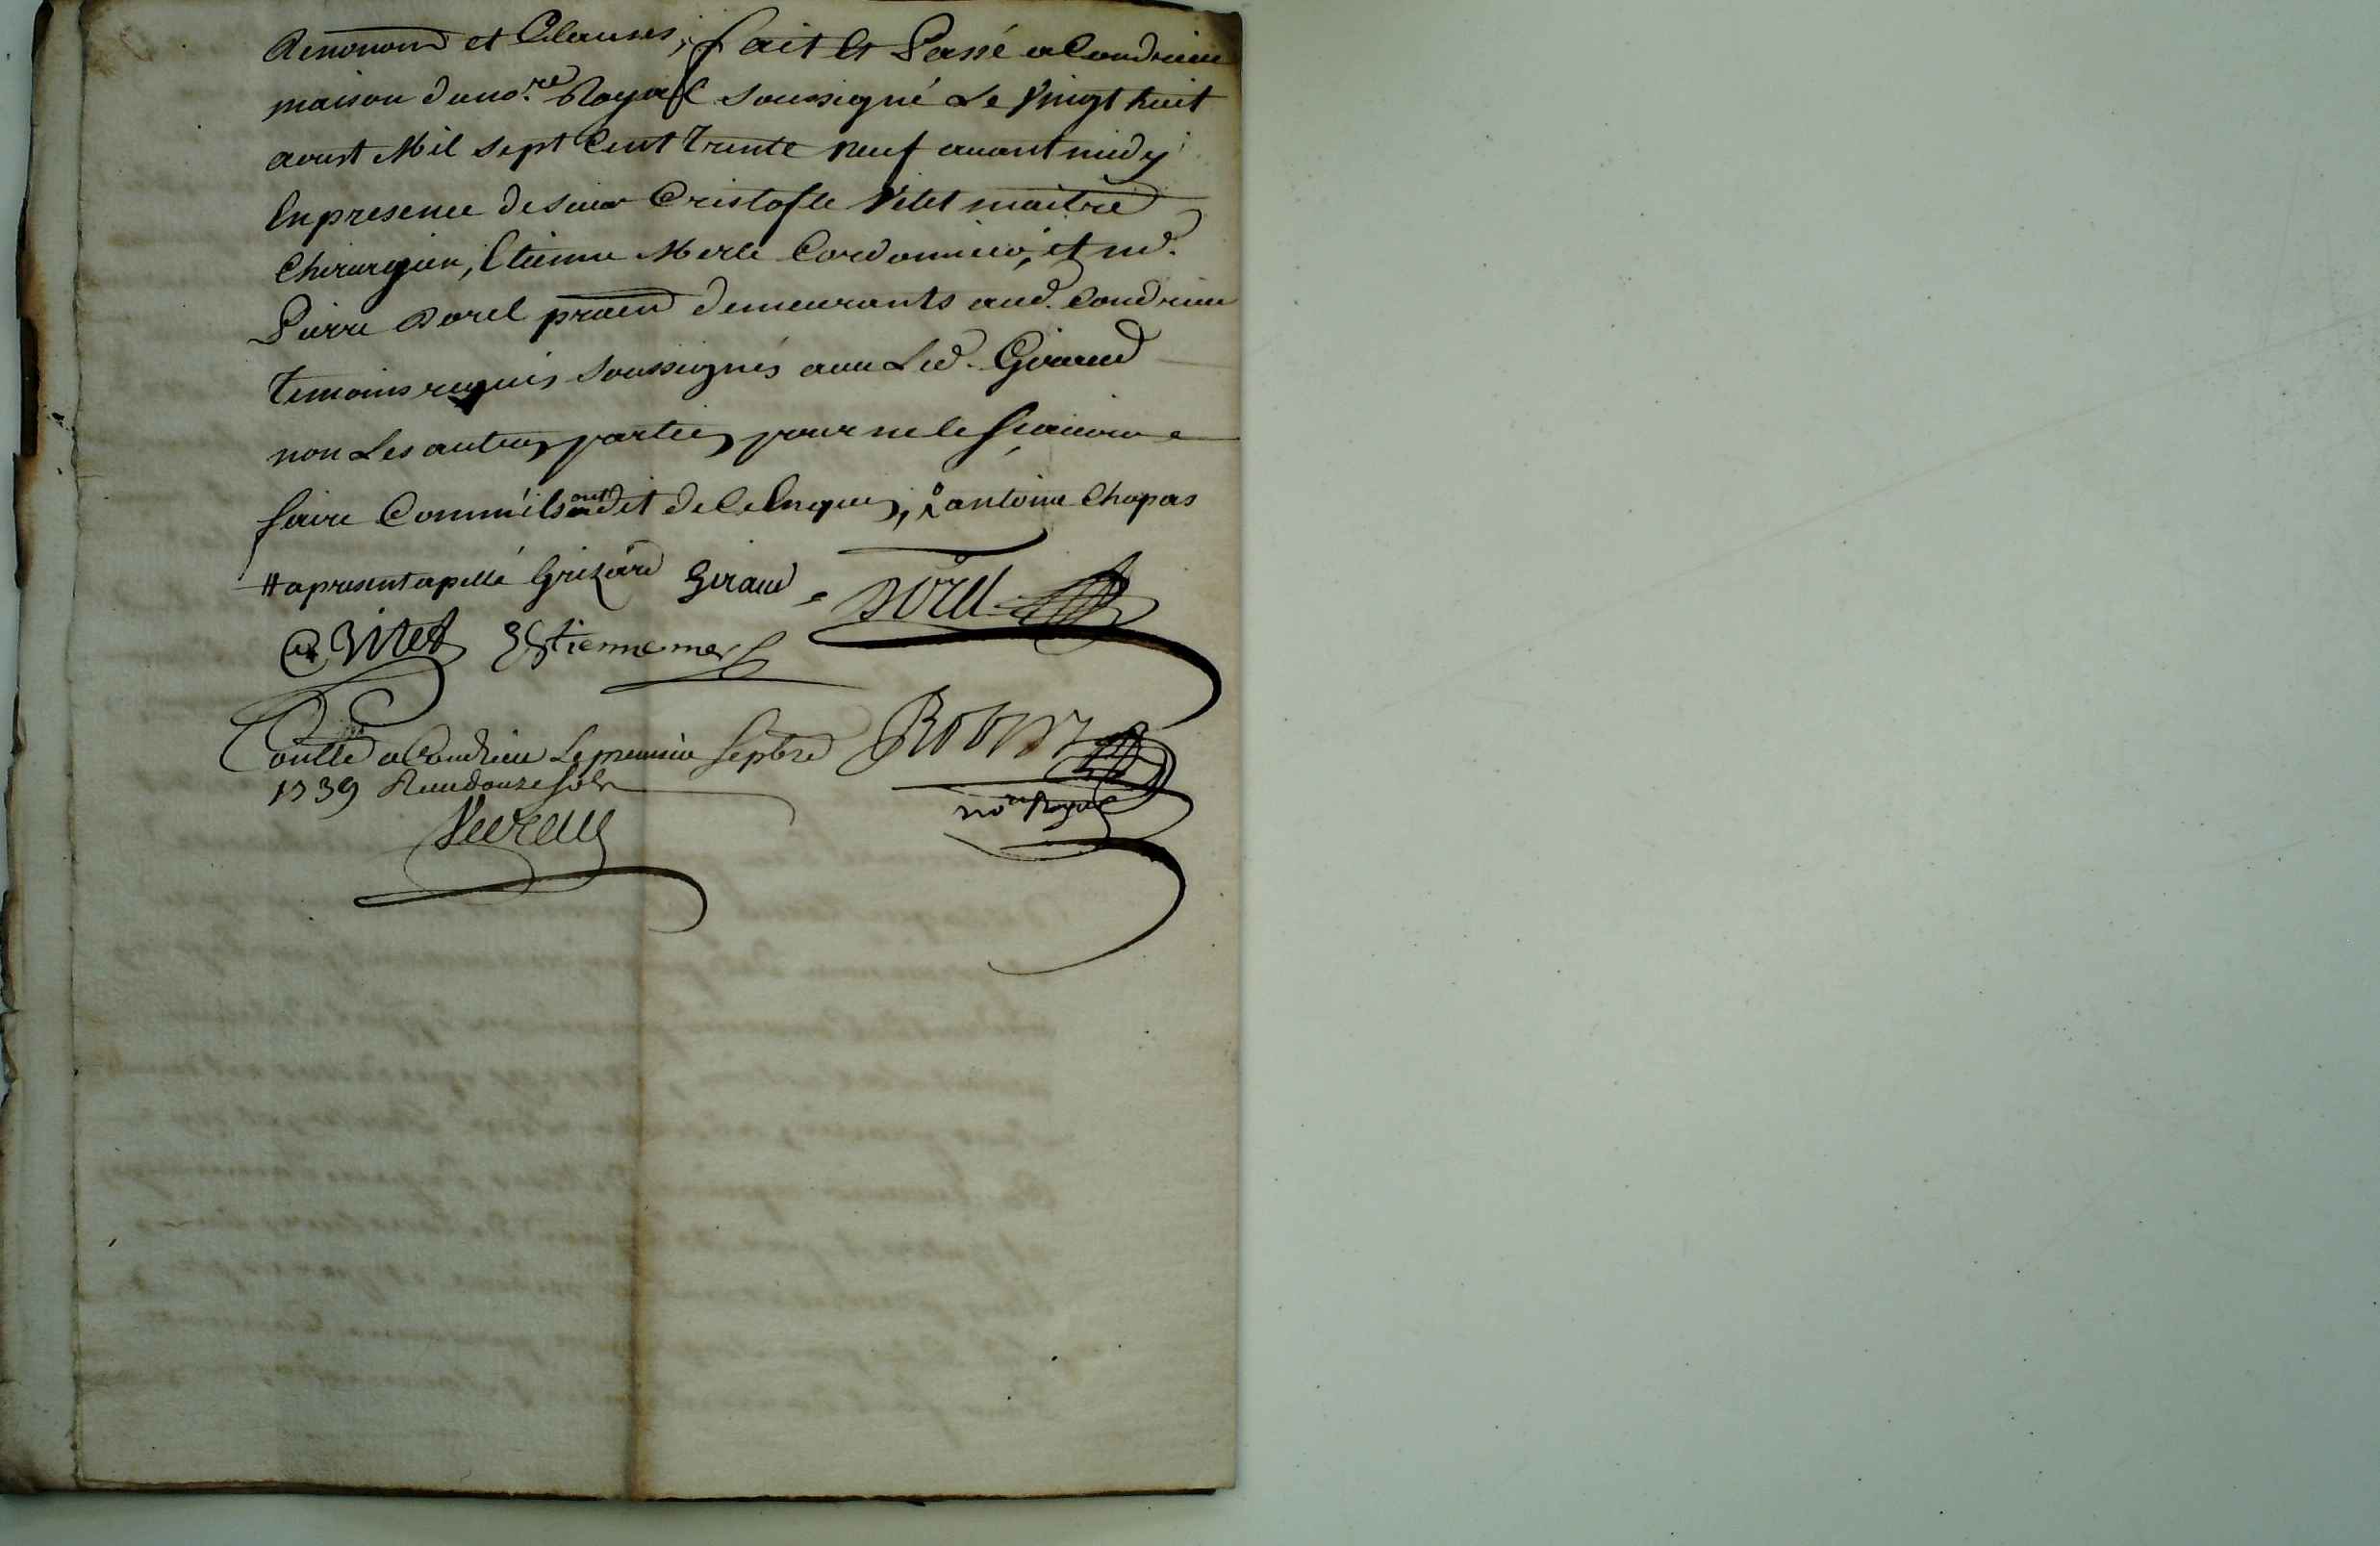 Renonom et Clauses, fait et Passé a Condrieu
maison du no.re Royal soussigné Le Vingt huit
aoust Mil sept Cent Trente neuf avant midy
En presence de sieur Cristofle Vitet maitre
Chirurgien, Etienne Merle Cordonnier, et me.
Pierre Dorel praen demeurants aud. Condrieu
Temoins requis soussignés avec Led. Giraud
non Les autres parties pour ne le sçavoir
faire Comm'ils ont dit de ce Enquis, antoine Chapas
# apresent apellé Grizard Giraud Dorel
Vitet Estienne merle
Conllé a Condrieu Le premier Septbre Robin
1739 Reçu douze sols
no.re Royal